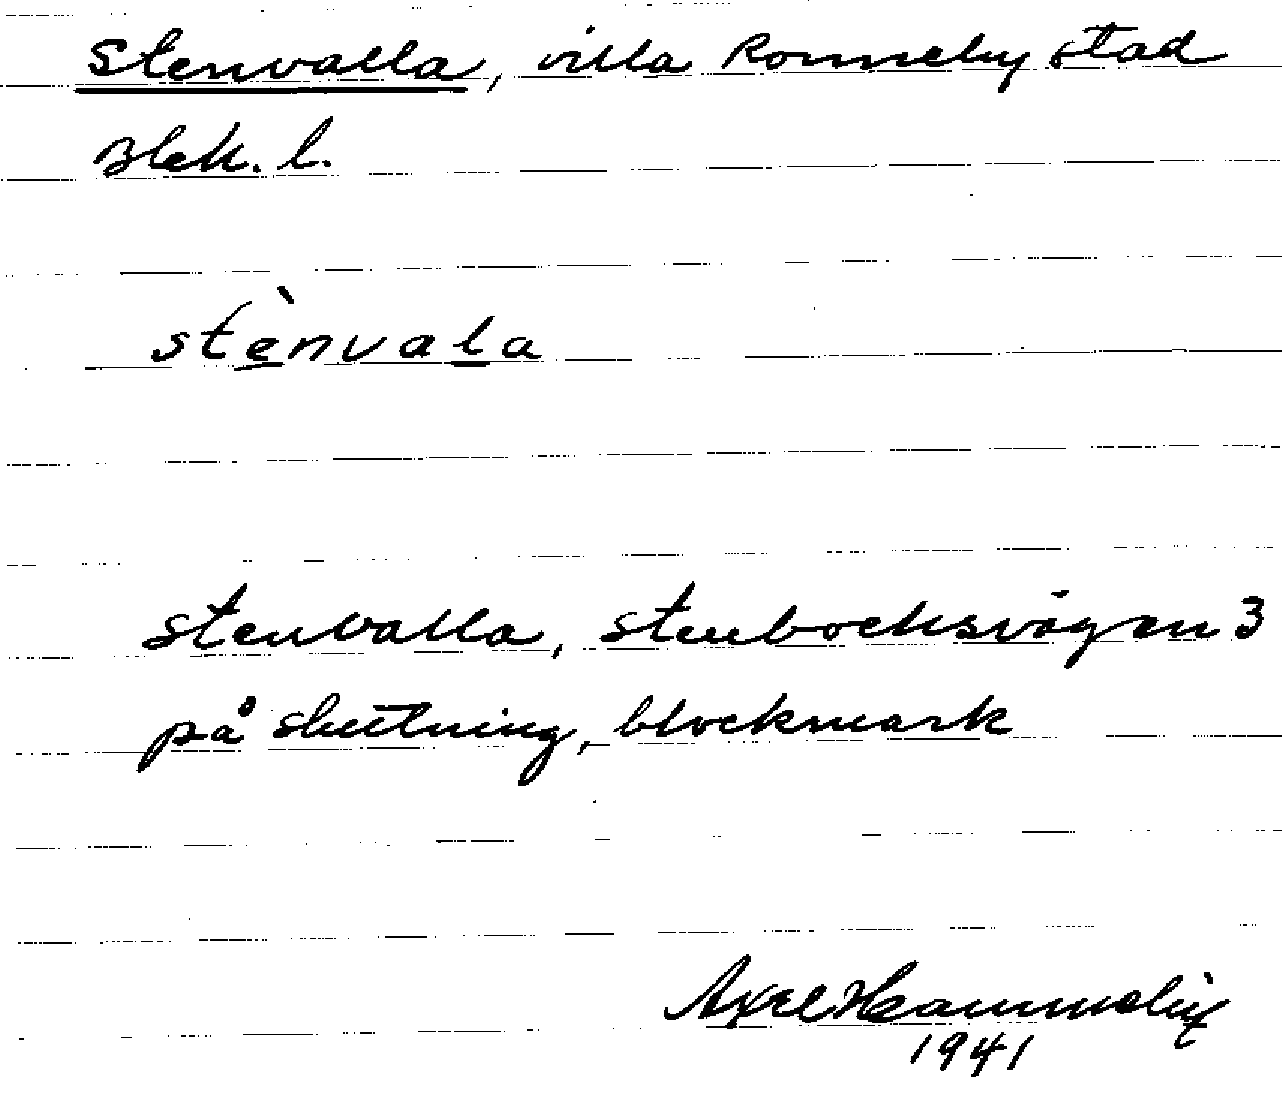 Stenvalla, villa Ronneby stad
Blek. l.
stènvala
Stenvalla, Stenbocksvägen 3
på sluttning, blockmark
Axel
1941